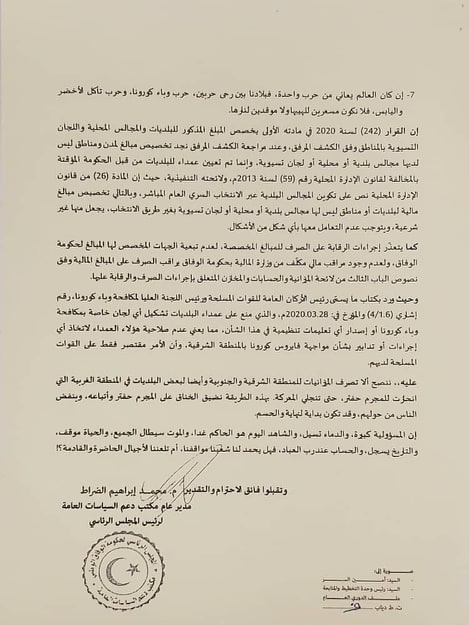 7- إن كان العالم يعاني من حرب واحدة، فبلادنا بين رحى حربين، حرب وباء كورونا، وحرب تأكل لأخضر
واليابس، فلا نكون مسعرين للهيبها ولا موقدين لنارها.
إن القرار (242) لسنة 2020 في مادته الأولى يخصص المبلغ المذكور للبلديات والمجالس المحلية واللجان
التسيرية بالمناطق وفق الكشف المرفق، وعند مراجعة الكشف المرفق نجد تخصيص مبالغ لمدن ومناطق ليس
لديها مجالس بلدية أو محلية أو لجان تسيرية، وإنما تم تعيين عمداء للبلديات من قبل الحكومة المؤقتة
بالمخالفة لقانون الإدارة المحلية رقم (59) لسنة 2013م، ولائحته التنفيذية، حيث إن المادة (26) من قانون
الإدارة المحلية نص على تكوين المجالس البلدية عبر الانتخاب السري العام المباشر، وبالتالي تخصيص مبالغ
مالية لبلديات أو مناطق ليس لها مجالس بلدية أو محلية أو لجان تسيرية بغير طريق الانتخاب، يجعل منها غير
شرعية، ويتوجب عدم التعامل معها بأي شكل من الأشكال.
كما يتعذر إجراءات الرقابة على الصرف للمبالغ المخصصة، لعدم تبعية الجهات المخصص لها المبالغ لحكومة
الوفاق، ولعدم وجود مراقب مالي مكلّف من وزارة المالية بحكومة الوفاق يراقب الصرف على المبالغ المالية وفق
نصوص الباب الثالث من لائحة المؤانية والحسابات والمخازن المتعلق بإجراءات الصرف والرقابة عليها.
وحيث ورد بكتاب ما يسمّى رئيس الأركان العامة للقوات المسلحة ورئيس اللجنة العليا لمكافحة وباء كورونا، رقم
إشري (4/1.6) والمؤرخ في: 2020.03.28م، والذي منع على عمداء البلديات تشكيل أي لجان خاصة بمكافحة
وباء كورونا أو إصدار أي تعليمات تنظيمية في هذا الشأن، مما يعني عدم صلاحية هؤلاء العمداء لاتخاذ أي
إجراءات أو تدابير بشأن مواجهة فايروس كورونا بالمنطقة الشرقية، وأن الأمر مقتصر فقط على القوات
المسلحة لديهم.
عليه،.. ننصح ألا تصرف المؤانيات للمنطقة الشرقية والجنوبية وأيضا لبعض البلديات في المنطقة الغربية التي
انحازت للمجرم حفتر، حتى تنجلي المعركة. بهذه الطريقة نضيق الخناق على المجرم حفتر وأتباعه، وينفض
الناس من حولهم، وقد تكون بداية لنهاية والحسم.
إن المسؤولية كبيرة، والدماء تسيل، والشاهد اليوم هو الحاكم غدا، والموت سيطال الجميع، والحياة موقف،
والتاريخ يسجل، والحساب عند رب العباد، فهل يحمد لنا شعبنا مواقفنا، أم تلعننا لأجيال الحاضرة والقادمة؟!
وتقبلوا فائق لاحترام والتقدير
م. محمد إبراهيم الضراط
مدير عام مكتب دعم السياسات العامة
لرئيس المجلس الرئاسي
المجلس الرئاسي لحكومة الوفاق الوطني
مكتب دعم السياسات العامة
صورة إلى:
- السيد: أمين السر
- السيد: رئيس وحدة التخطيط والمتابعة
- ملف الدوري العام
ت. ط دياب